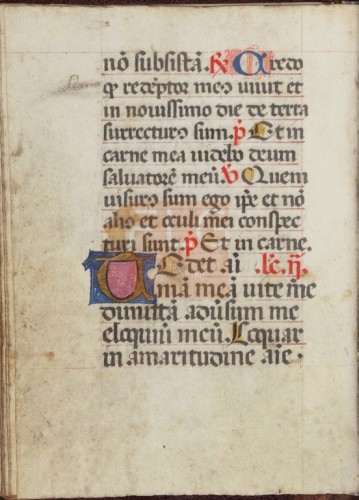 nō subsistā. R̄ Credo
qp redēptor meus uiuit et
in nouissimo die de terra
surrecturus sum. p̄ Et in
carne mea uidebo deum
saluatorē meū. V̄ Quem
uisurus sum ego ip̄e et nō
alius et oculi mei conspec
turi sunt. p̄ Et in carne.
T edet aī lc̄. ij.
am meā uite mē
dimittā aduersum me
eloquiū meū. Loquar
in amaritudine aīe